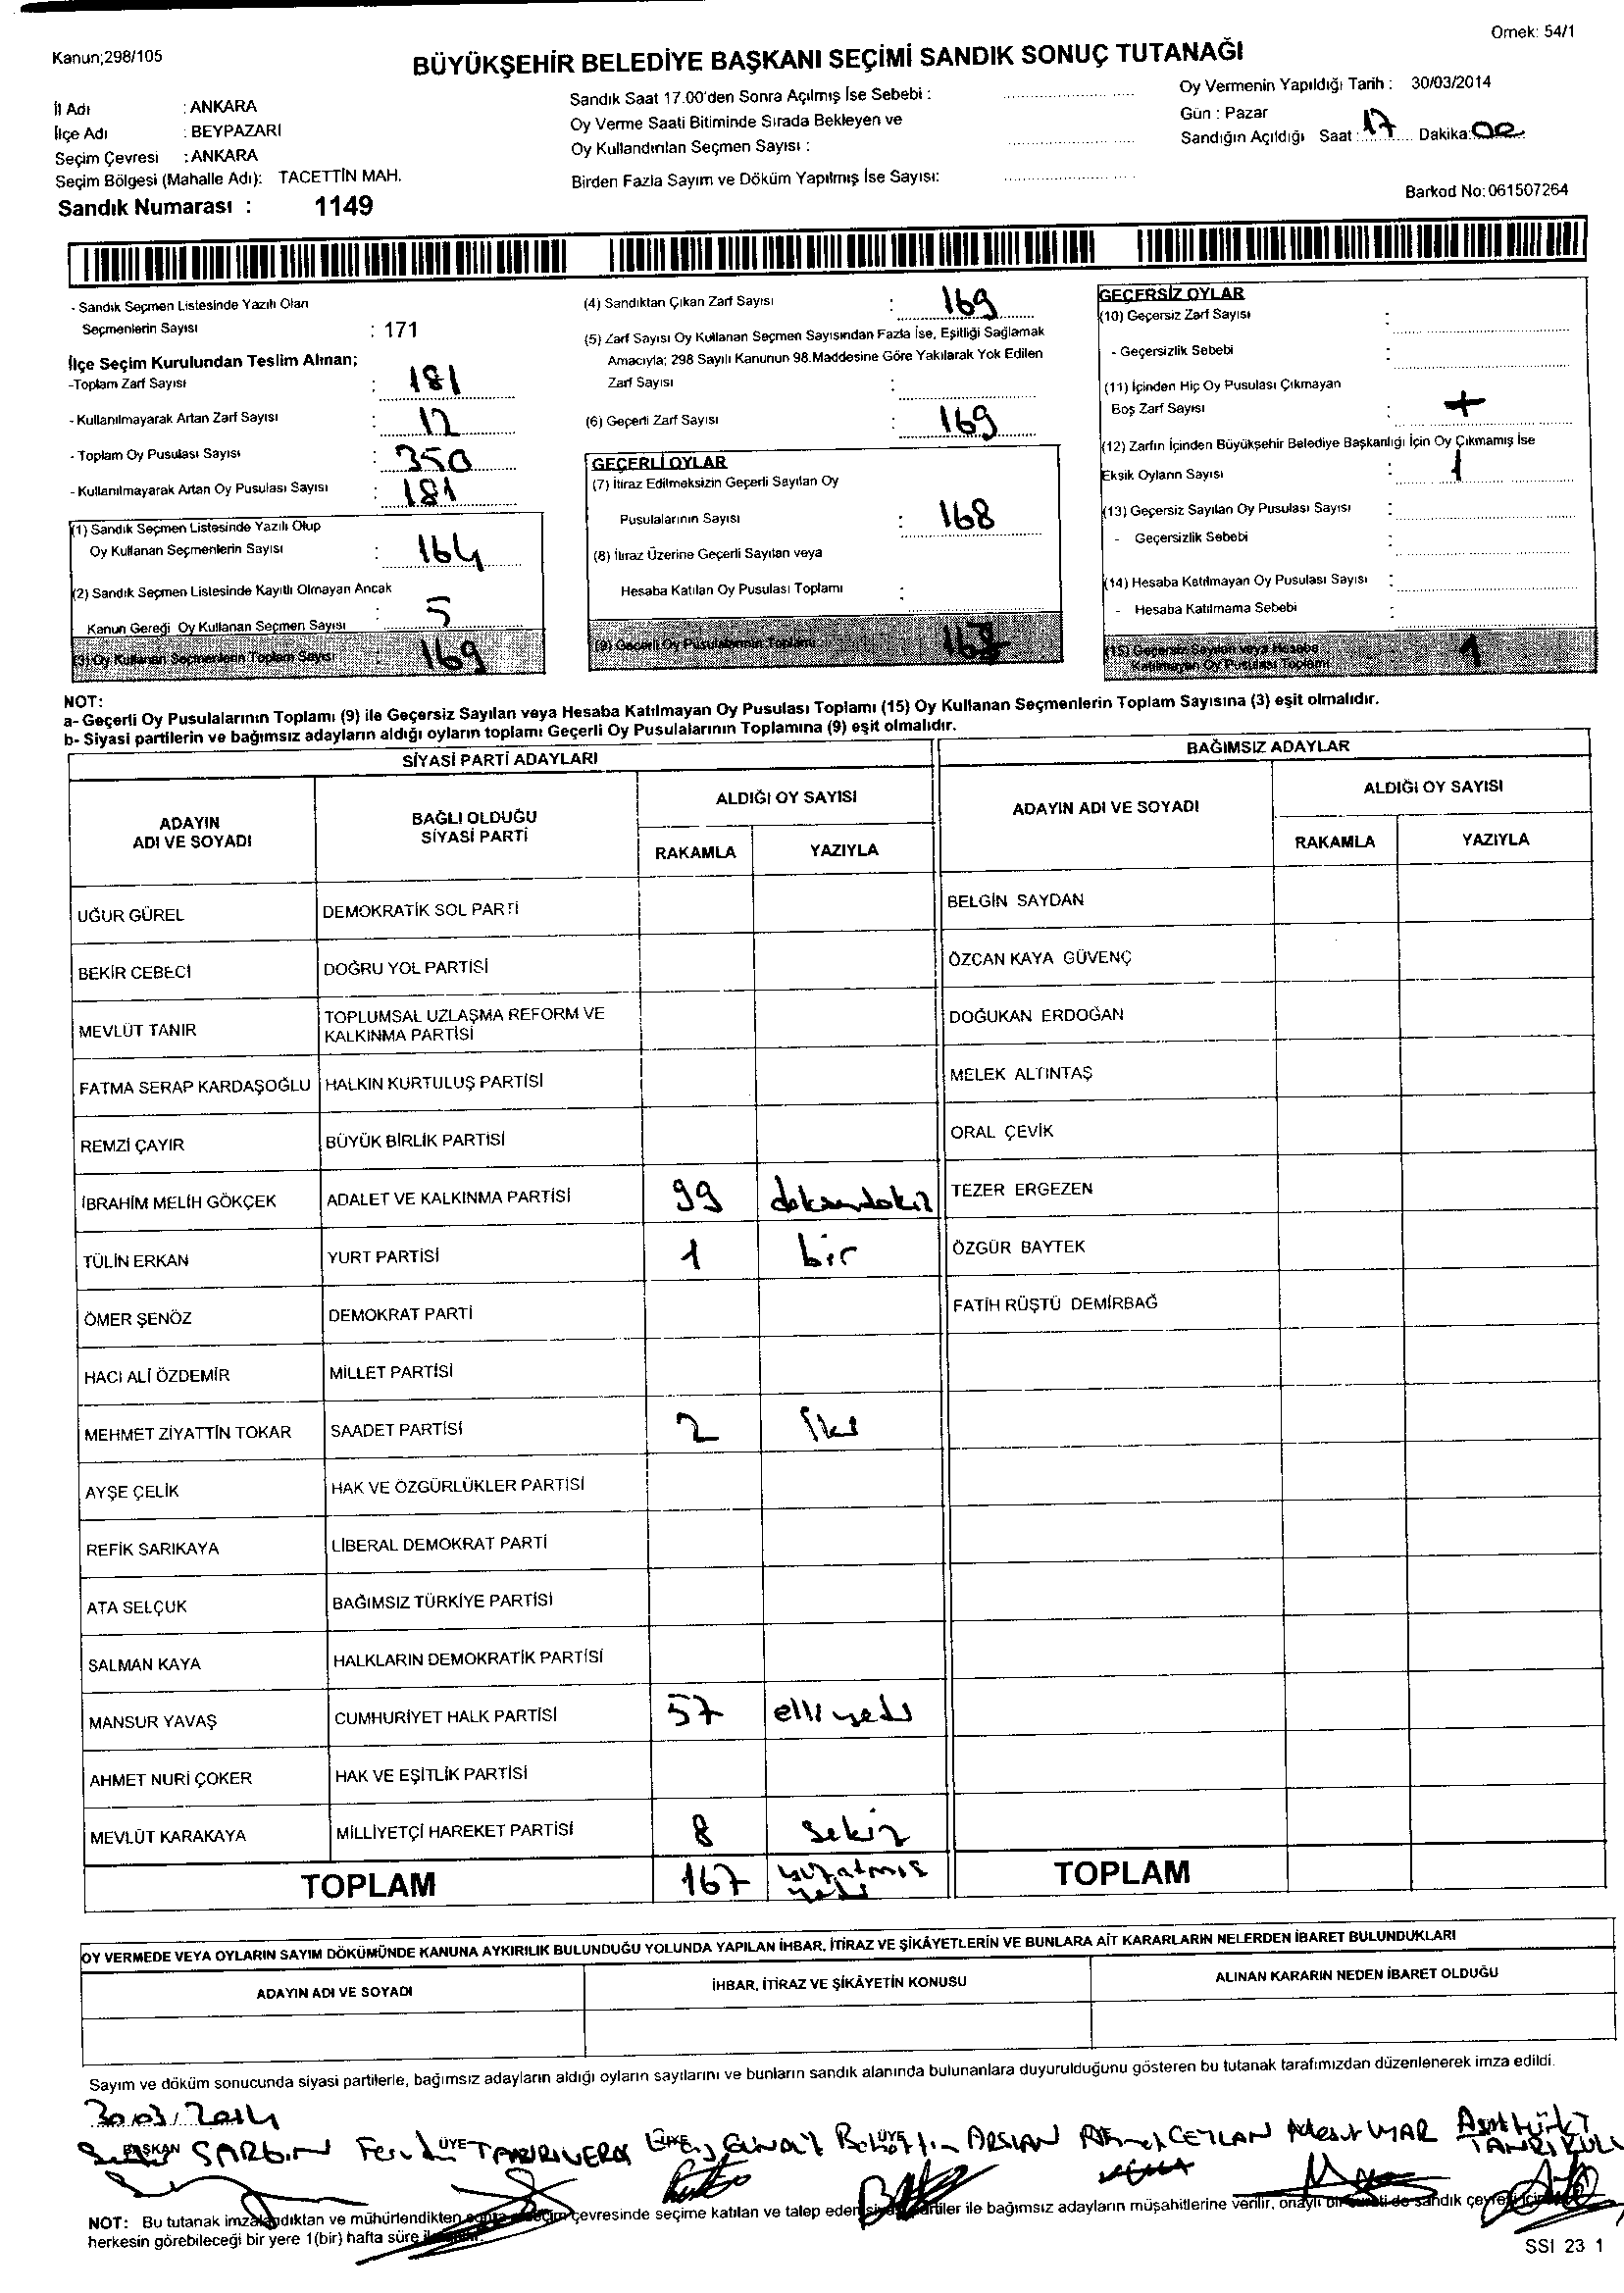 Kanun;298/105
Örnek: 54/1
BÜYÜKŞEHİR BELEDİYE BAŞKANI SEÇİMİ SANDIK SONUÇ TUTANAĞI
İl Adı : ANKARA
İlçe Adı : BEYPAZARI
Seçim Çevresi : ANKARA
Seçim Bölgesi (Mahalle Adı): TACETTİN MAH.
Sandık Numarası : 1149
Sandık Saat 17.00'den Sonra Açılmış İse Sebebi :
Oy Verme Saati Bitiminde Sırada Bekleyen ve
Oy Kullandırılan Seçmen Sayısı :
Birden Fazla Sayım ve Döküm Yapılmış İse Sayısı:
Oy Vermenin Yapıldığı Tarih : 30/03/2014
Gün : Pazar
Sandığın Açıldığı Saat : 17 Dakika: 00
Barkod No: 061507264
- Sandık Seçmen Listesinde Yazılı Olan
Seçmenlerin Sayısı : 171
İlçe Seçim Kurulundan Teslim Alınan;
-Toplam Zarf Sayısı : 181
- Kullanılmayarak Artan Zarf Sayısı : 12
- Toplam Oy Pusulası Sayısı : 350
- Kullanılmayarak Artan Oy Pusulası Sayısı : 181
(1) Sandık Seçmen Listesinde Yazılı Olup
Oy Kullanan Seçmenlerin Sayısı : 164
(2) Sandık Seçmen Listesinde Kayıtlı Olmayan Ancak
Kanun Gereği Oy Kullanan Seçmen Sayısı : 5
(3) Oy Kullanan Seçmenlerin Toplam Sayısı : 169
(4) Sandıktan Çıkan Zarf Sayısı : 169
(5) Zarf Sayısı Oy Kullanan Seçmen Sayısından Fazla İse, Eşitliği Sağlamak
Amacıyla; 298 Sayılı Kanunun 98.Maddesine Göre Yakılarak Yok Edilen
Zarf Sayısı :
(6) Geçerli Zarf Sayısı : 169
GEÇERLİ OYLAR
(7) İtiraz Edilmeksizin Geçerli Sayılan Oy
Pusulalarının Sayısı : 168
(8) İtiraz Üzerine Geçerli Sayılan veya
Hesaba Katılan Oy Pusulası Toplamı :
(9) Geçerli Oy Pusulalarının Toplamı
GEÇERSİZ OYLAR
(10) Geçersiz Zarf Sayısı :
- Geçersizlik Sebebi :
(11) İçinden Hiç Oy Pusulası Çıkmayan
Boş Zarf Sayısı :
(12) Zarfın İçinden Büyükşehir Belediye Başkanlığı İçin Oy Çıkmamış İse
Eksik Oyların Sayısı : 1
(13) Geçersiz Sayılan Oy Pusulası Sayısı :
- Geçersizlik Sebebi :
(14) Hesaba Katılmayan Oy Pusulası Sayısı :
- Hesaba Katılmama Sebebi :
(15) Geçersiz Sayılan veya Hesaba
Katılmayan Oy Pusulası Toplamı 1
NOT:
a- Geçerli Oy Pusulalarının Toplamı (9) ile Geçersiz Sayılan veya Hesaba Katılmayan Oy Pusulası Toplamı (15) Oy Kullanan Seçmenlerin Toplam Sayısına (3) eşit olmalıdır.
b- Siyasi partilerin ve bağımsız adayların aldığı oyların toplamı Geçerli Oy Pusulalarının Toplamına (9) eşit olmalıdır.
SİYASİ PARTİ ADAYLARI
ADAYIN
ADI VE SOYADI
BAĞLI OLDUĞU
SİYASİ PARTİ
ALDIĞI OY SAYISI
RAKAMLA YAZIYLA
UĞUR GÜREL DEMOKRATİK SOL PARTİ
BEKİR CEBECİ DOĞRU YOL PARTİSİ
MEVLÜT TANIR TOPLUMSAL UZLAŞMA REFORM VE
KALKINMA PARTİSİ
FATMA SERAP KARDAŞOĞLU HALKIN KURTULUŞ PARTİSİ
REMZİ ÇAYIR BÜYÜK BİRLİK PARTİSİ
İBRAHİM MELİH GÖKÇEK ADALET VE KALKINMA PARTİSİ 99
TÜLİN ERKAN YURT PARTİSİ 1 bir
ÖMER ŞENÖZ DEMOKRAT PARTİ
HACI ALİ ÖZDEMİR MİLLET PARTİSİ
MEHMET ZİYATTİN TOKAR SAADET PARTİSİ 2 İki
AYŞE ÇELİK HAK VE ÖZGÜRLÜKLER PARTİSİ
REFİK SARIKAYA LİBERAL DEMOKRAT PARTİ
ATA SELÇUK BAĞIMSIZ TÜRKİYE PARTİSİ
SALMAN KAYA HALKLARIN DEMOKRATİK PARTİSİ
MANSUR YAVAŞ CUMHURİYET HALK PARTİSİ 57 elli yedi
AHMET NURİ ÇOKER HAK VE EŞİTLİK PARTİSİ
MEVLÜT KARAKAYA MİLLİYETÇİ HAREKET PARTİSİ 8 sekiz
TOPLAM 167 yüzatmış
yedi
BAĞIMSIZ ADAYLAR
ADAYIN ADI VE SOYADI
ALDIĞI OY SAYISI
RAKAMLA YAZIYLA
BELGİN SAYDAN
ÖZCAN KAYA GÜVENÇ
DOĞUKAN ERDOĞAN
MELEK ALTINTAŞ
ORAL ÇEVİK
TEZER ERGEZEN
ÖZGÜR BAYTEK
FATİH RÜŞTÜ DEMİRBAĞ
TOPLAM
OY VERMEDE VEYA OYLARIN SAYIM DÖKÜMÜNDE KANUNA AYKIRILIK BULUNDUĞU YOLUNDA YAPILAN İHBAR, İTİRAZ VE ŞİKÂYETLERİN VE BUNLARA AİT KARARLARIN NELERDEN İBARET BULUNDUKLARI
ADAYIN ADI VE SOYADI İHBAR, İTİRAZ VE ŞİKÂYETİN KONUSU ALINAN KARARIN NEDEN İBARET OLDUĞU
Sayım ve döküm sonucunda siyasi partilerle, bağımsız adayların aldığı oyların sayılarını ve bunların sandık alanında bulunanlara duyurulduğunu gösteren bu tutanak tarafımızdan düzenlenerek imza edildi.
30.03.2014
BAŞKAN ÜYE TANRIVERDİ ÜYE ÜYE ARSLAN Ahmet CEYLAN Mesut UYAR
TANRIKULU
NOT: Bu tutanak imzalandıktan ve mühürlendikten sonra seçim çevresinde seçime katılan ve talep eden siyasi partiler ile bağımsız adayların müşahitlerine verilir, onaylı bir sureti de sandık çevresi
herkesin görebileceği bir yere 1(bir) hafta süre
SSI 23 1